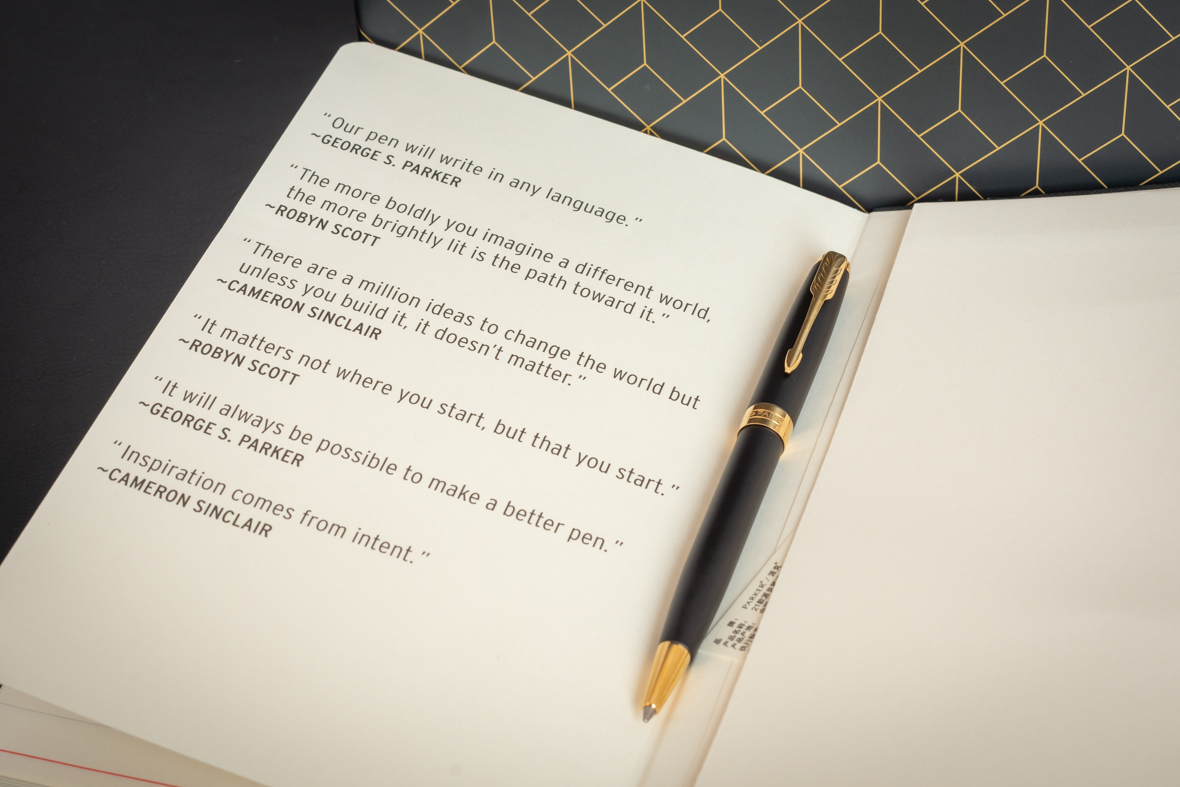 “Our pen will write in any language.”
~GEORGE S. PARKER
“The more boldly you imagine a different world,
the more brightly lit is the path toward it.”
~ROBYN SCOTT
“There are a million ideas to change the world but
unless you build it, it doesn’t matter.”
~CAMERON SINCLAIR
“It matters not where you start, but that you start.”
~ROBYN SCOTT
“It will always be possible to make a better pen.”
~GEORGE S. PARKER
“Inspiration comes from intent.”
~CAMERON SINCLAIR
PARKER